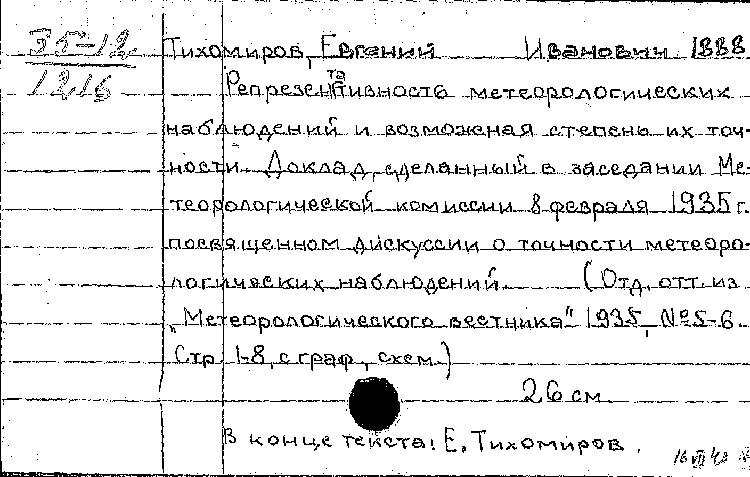 35-12
1216
Тихомиров, Евгений Иванович 1888
Репрезентативность метеорологических
наблюдений и возможная степень их точ-
ности. Доклад, сделанный в заседании Ме-
теорологической комиссии 8 февраля 1935 г.
посвященном дискуссии о точности метеоро-
логических наблюдений. (Отд. отт. из
"Метеорологического вестника" 1935, № 5-6
Стр. 1-8, с граф., схем.)
26 см
В конце текста: Е. Тихомиров.
16 VII 43